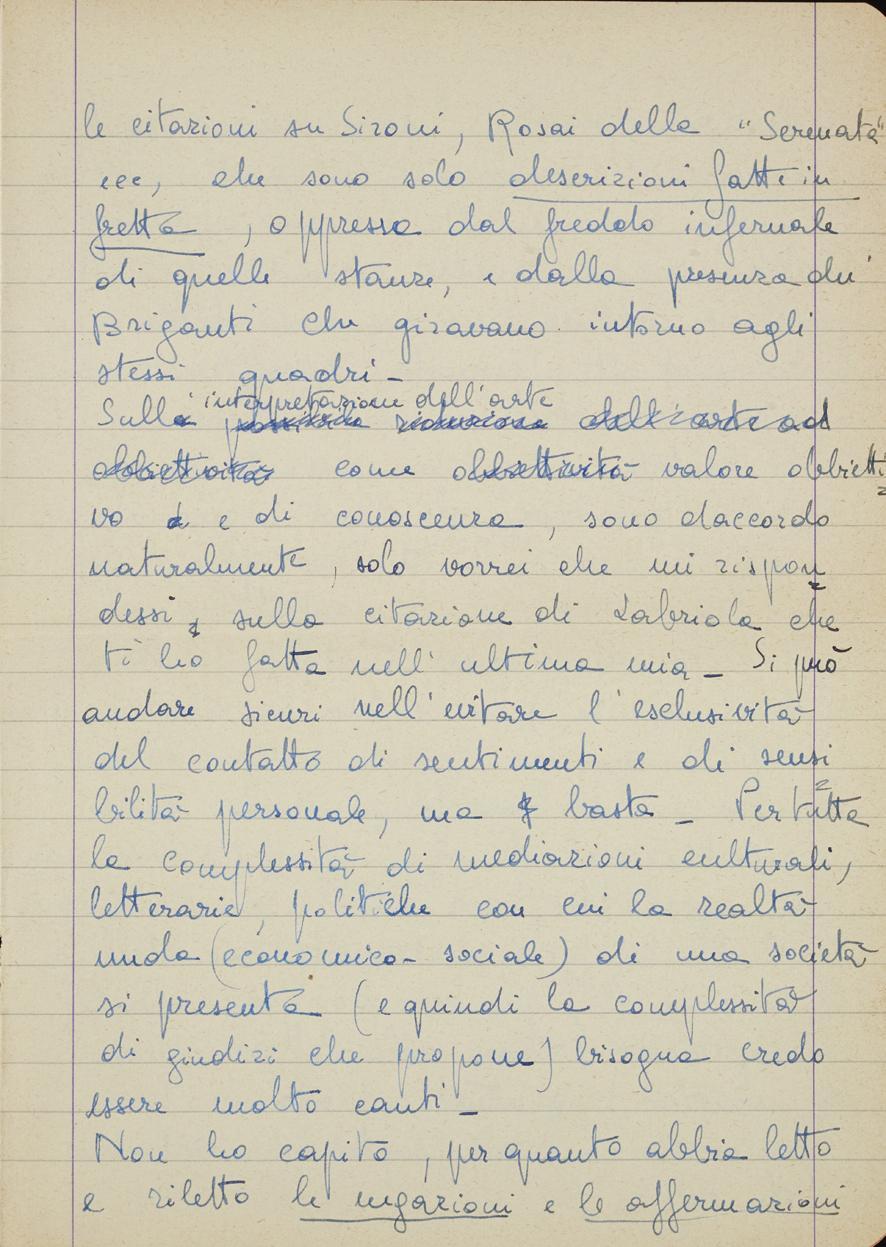 le citazioni su Sironi, Rosai della "Serenata"
ecc, che sono solo descrizioni fatte in
fretta , oppressa dal freddo infernale
di quelle stanze, e dalla presenza dei
Briganti che giravano intorno agli
stessi quadri -
interpretazione dell'arte
Sulla possibile riduzione dell'arte ad
obbiettività come obbiettività valore obbietti
vo e di conoscenza, sono daccordo
naturalmente, solo vorrei che mi rispon
dessi, sulla citazione di Labriola che
ti ho fatta nell'ultima mia - Si può
andare sicuri nell'evitare l'esclusività
del contatto di sentimenti e di sensi
bilità personale, ma basta - Per tutta
la complessità di mediazioni culturali,
letterarie, politiche con cui la realtà
nuda (economico-sociale) di una società
si presenta (e quindi la complessità
di giudizi che propone) bisogna credo
essere molto cauti -
Non ho capito, per quanto abbia letto
e riletto le negazioni e le affermazioni